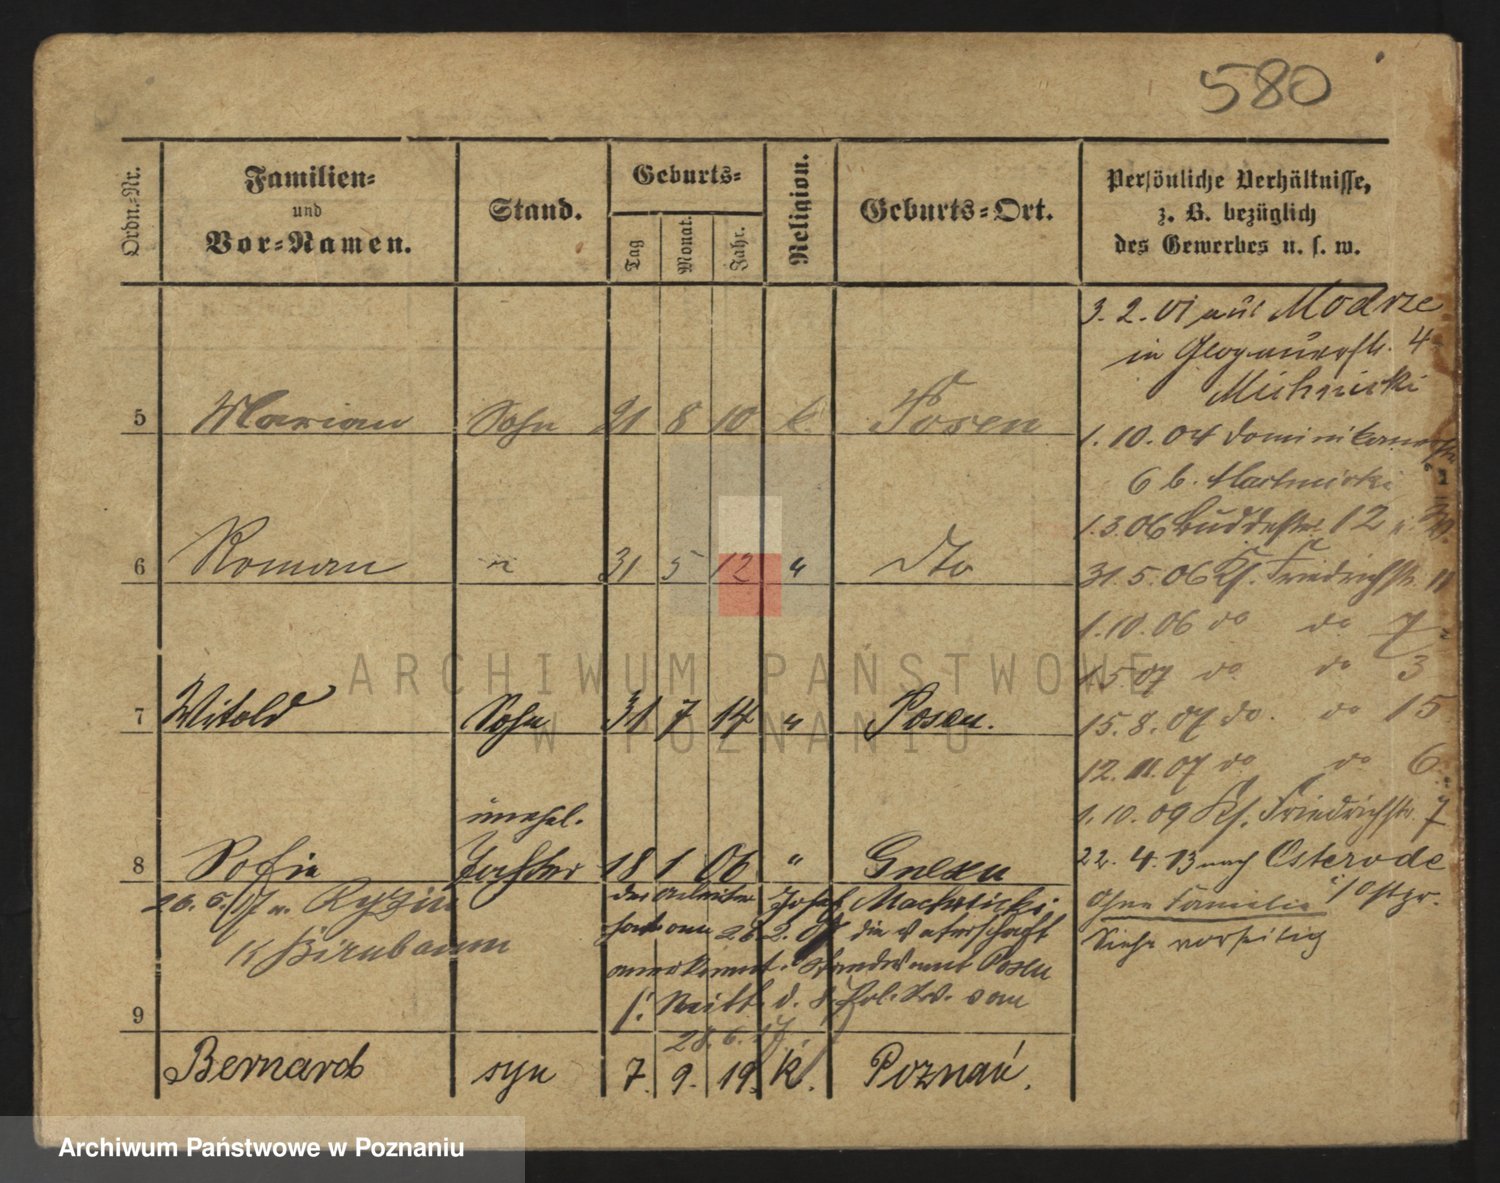 580
Ordn.-Nr.
Familien- und Vor-Namen.
Stand.
Geburts-
Tag
Monat.
Jahr.
Religion.
Geburts-Ort.
Persönliche Verhältnisse,
z. B. bezüglich
des Gewerbes u. s. w.
3. 2. 01 aus Modrze
in Glogauerstr. 4
1. 10. 04 Dominikanerstr.
6 b.
1. 3. 06 Buddestr. 12
31. 5. 06 Kf. Friedrichstr. 11
1. 10. 06 do do 7
1 5 07 do do 3
15. 8. 07 do. do 15
12. 11. 07 do do 6
1. 10. 09 Kf. Friedrichstr. 7
22. 4. 13 nach Osterode
i/Ostpr.
Ohne Familie
Siehe vorseitig
5 Marian Sohn 21 8 10 k. Posen
6 Roman " 31 5 12 " dto
7 Witold Sohn 31 7 14 " Posen.
8 Sofie unehel. Tochter 18 1 06 " Gnesen
K Birnbaum
der Arbeiter Josef
hat am 26.2.07 die Vaterschaft
anerkannt. Standesamt Posen
28.6.17.
9
Bernard syn 7. 9. 19. k. Poznań.
ARCHIWUM PAŃSTWOWE
W POZNANIU
Archiwum Państwowe w Poznaniu